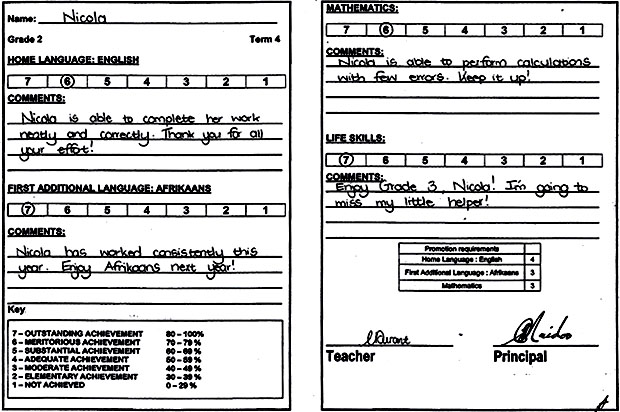 Name: Nicola
Grade 2 Term 4
HOME LANGUAGE: ENGLISH
7 6 5 4 3 2 1
COMMENTS:
Nicola is able to complete her work
neatly and correctly. Thank you for all
your effort!
FIRST ADDITIONAL LANGUAGE: AFRIKAANS
7 6 5 4 3 2 1
COMMENTS:
Nicola has worked consistently this
year. Enjoy Afrikaans next year!
Key
7 – OUTSTANDING ACHIEVEMENT 80 – 100%
6 – MERITORIOUS ACHIEVEMENT 70 – 79 %
5 – SUBSTANTIAL ACHIEVEMENT 60 – 69 %
4 – ADEQUATE ACHIEVEMENT 50 – 59 %
3 – MODERATE ACHIEVEMENT 40 – 49 %
2 – ELEMENTARY ACHIEVEMENT 30 – 39 %
1 – NOT ACHIEVED 0 – 29 %
MATHEMATICS:
7 6 5 4 3 2 1
COMMENTS:
Nicola is able to perform calculations
with few errors. Keep it up!
LIFE SKILLS:
7 6 5 4 3 2 1
COMMENTS:
Enjoy Grade 3, Nicola! I'm going to
miss my little helper!
Promotion requirements
Home Language : English 4
First Additional Language : Afrikaans 3
Mathematics 3
Teacher Principal